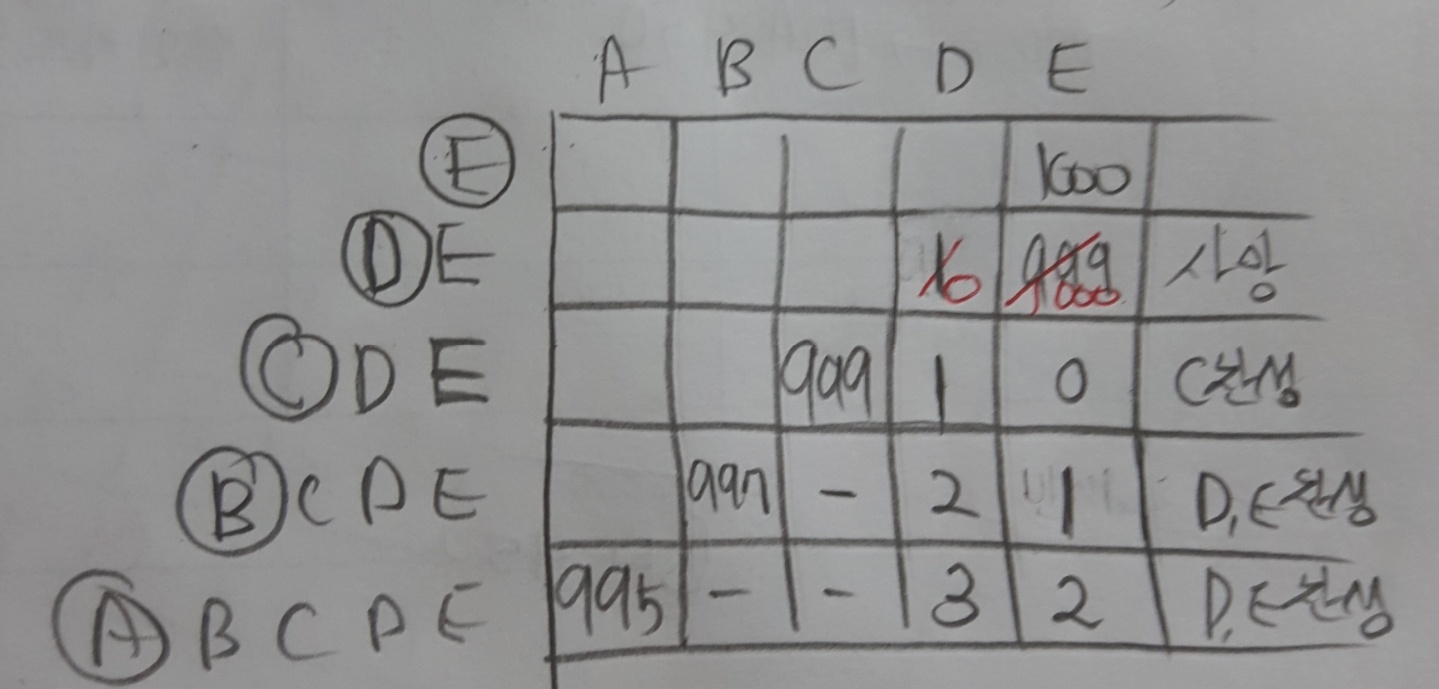 A B C D E
E 1000
D E 1 0 999 1000 사망
C D E 999 1 0 C찬성
B C D E 997 - 2 1 D,E찬성
A B C D E 995 - - 3 2 D,E찬성